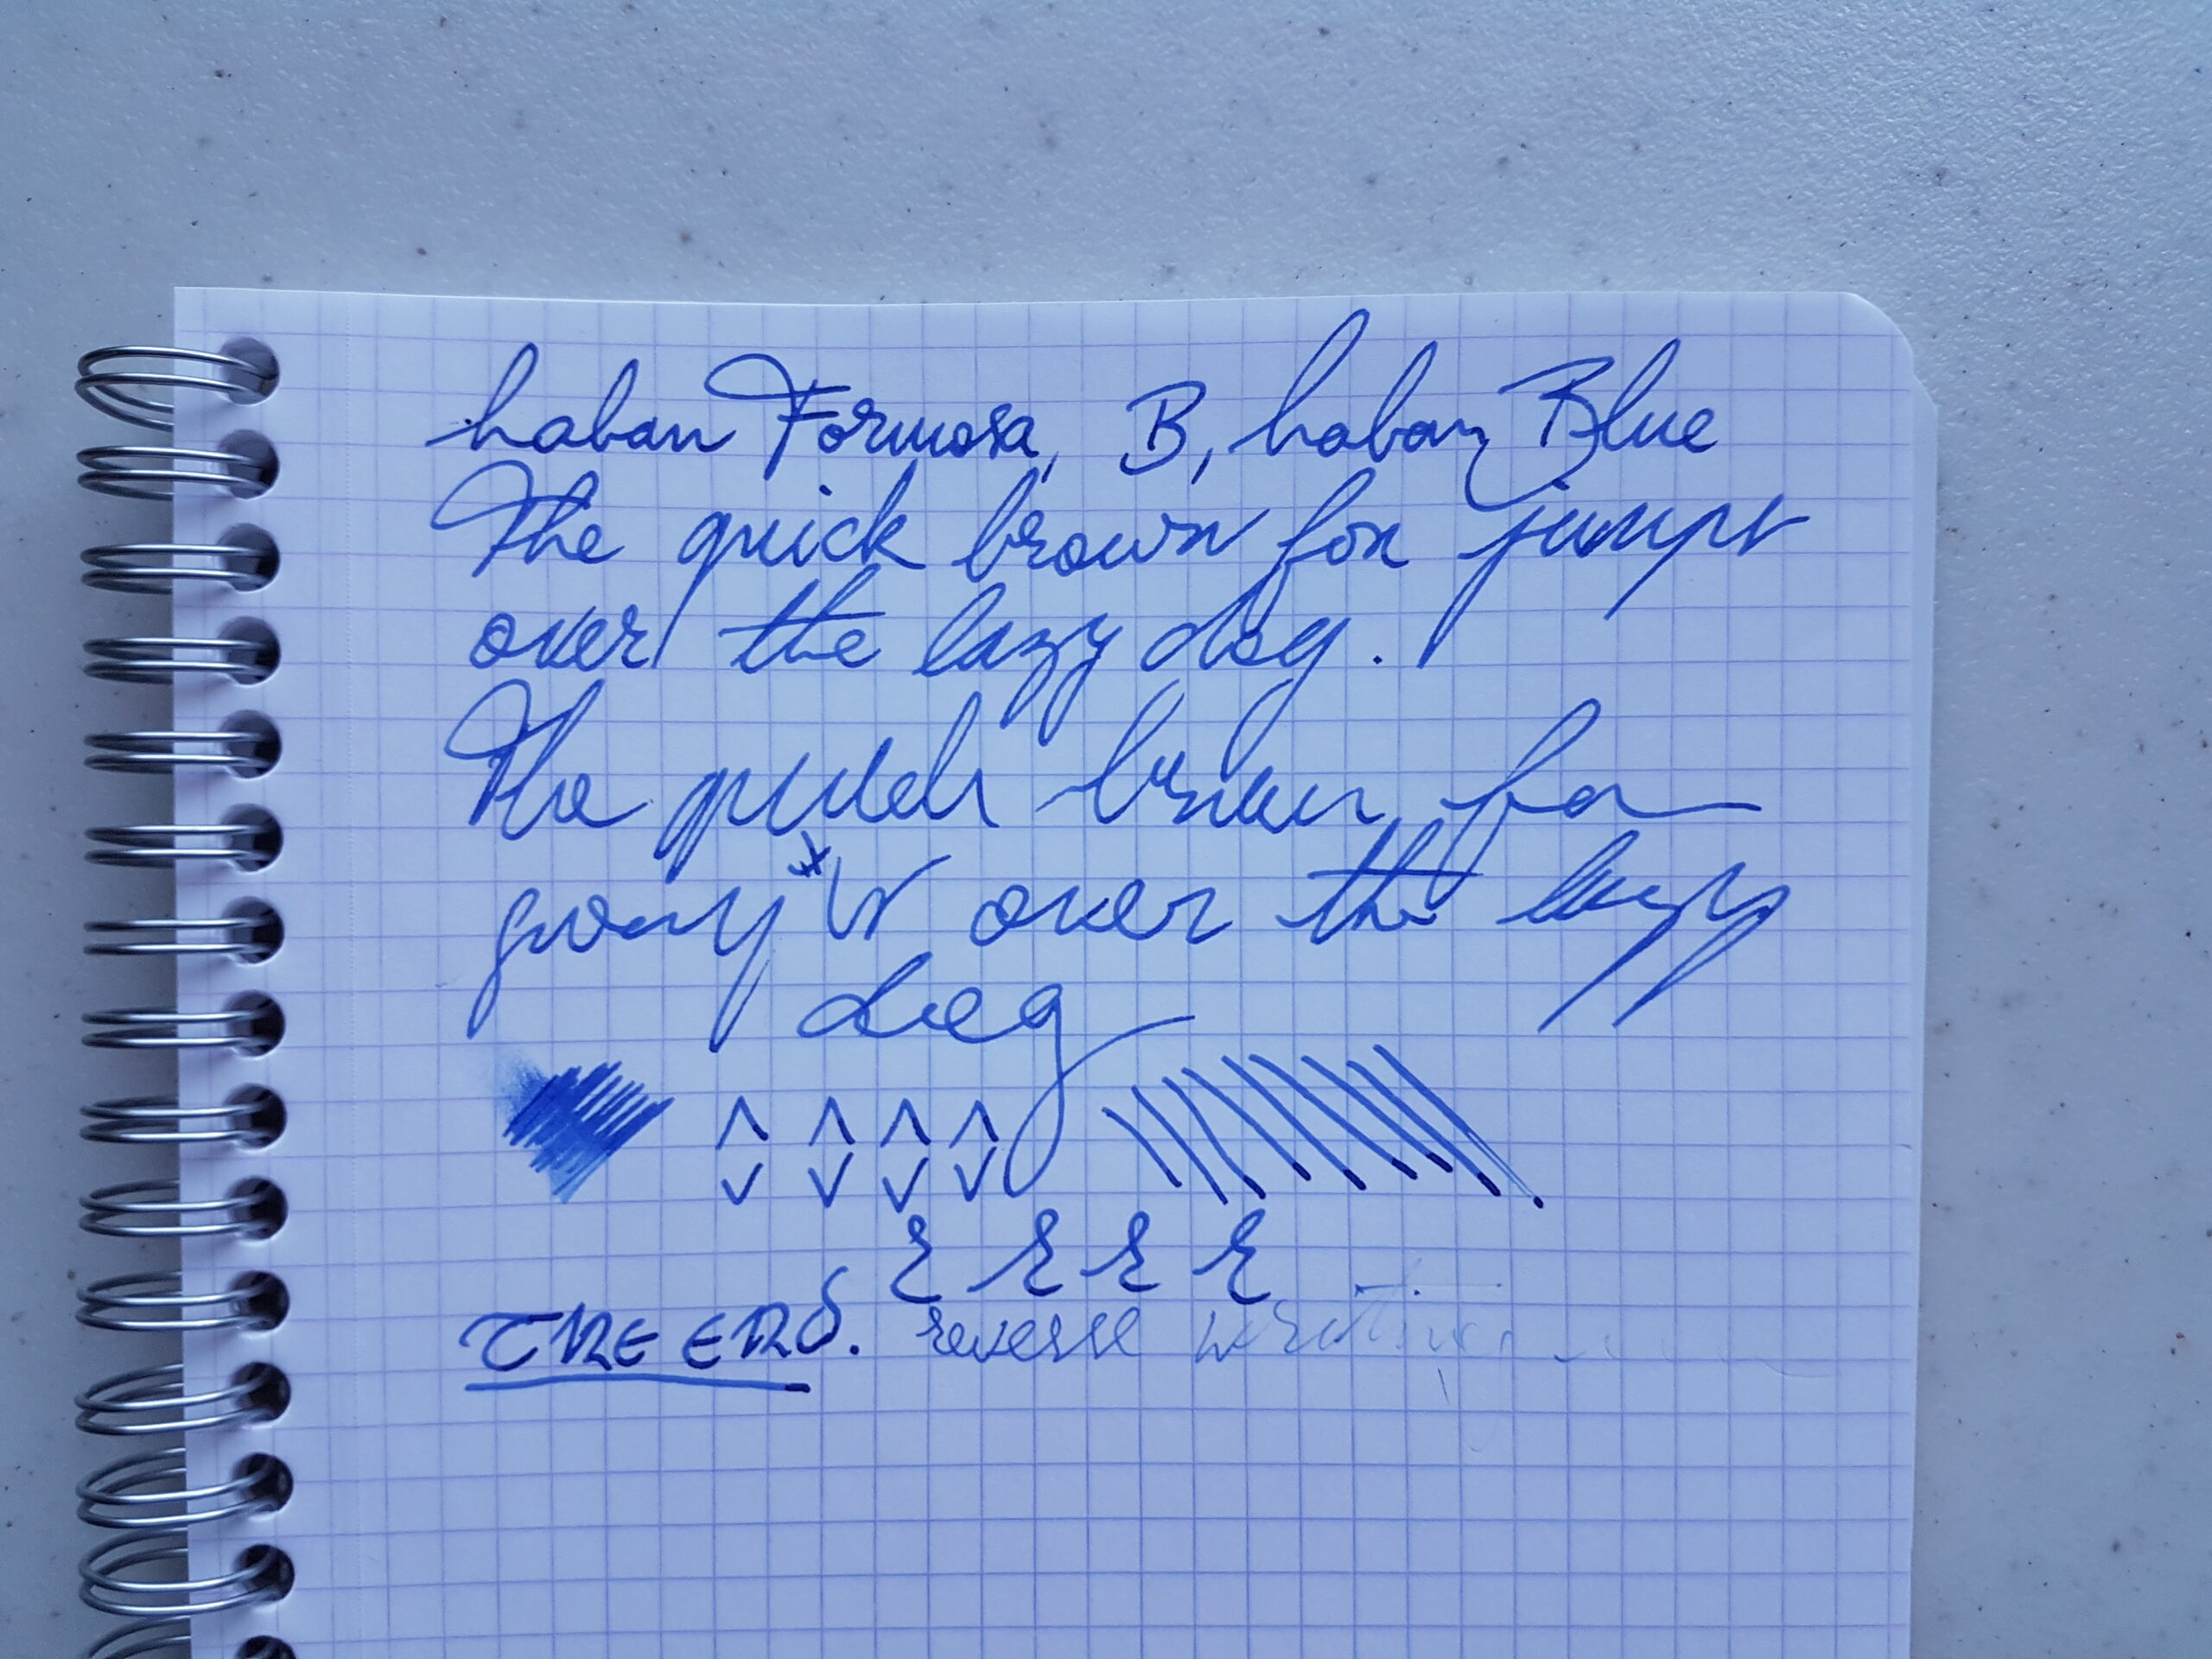 Laban Formosa, B, Laban Blue
The quick brown fox jumps
over the lazy dog.
The quick brown fox
jumps over the lazy
dog
THE END. reverse writing